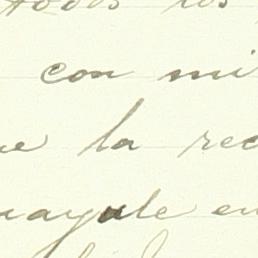 todos los
con mi
la rec
guayule en